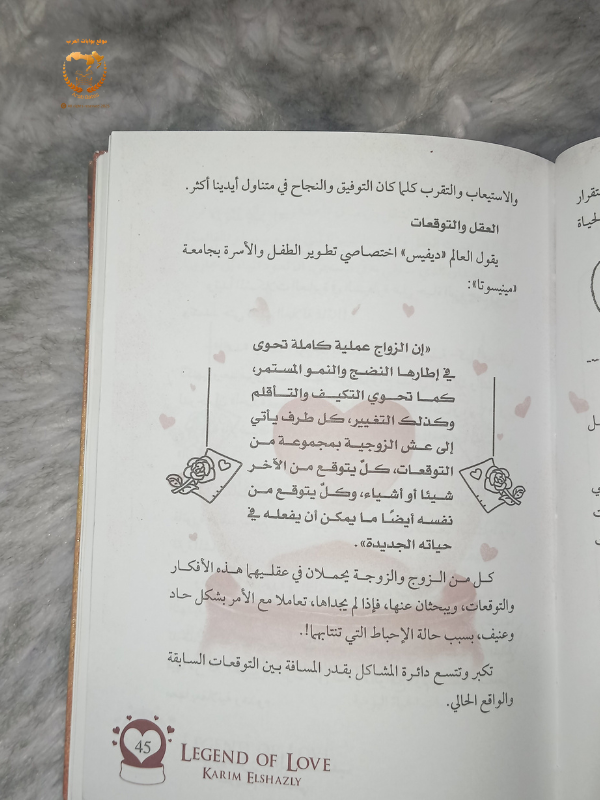 موقع بوابات العرب
والاستيعاب والتقرب كلما كان التوفيق والنجاح في متناول أيدينا أكثر.
العقل والتوقعات
يقول العالم «ديفيس» اختصاصي تطوير الطفل والأسرة بجامعة
«مينيسوتا»:
«إن الزواج عملية كاملة تحوى
في إطارها النضج والنمو المستمر،
كما تحوي التكيف والتأقلم
وكذلك التغيير، كل طرف يأتي
إلى عش الزوجية بمجموعة من
التوقعات، كلّ يتوقع من الآخر
شيئا أو أشياء، وكلّ يتوقع من
نفسه أيضًا ما يمكن أن يفعله في
حياته الجديدة».
كل من الزوج والزوجة يحملان في عقليهما هذه الأفكار
والتوقعات، ويبحثان عنها، فإذا لم يجداها، تعاملا مع الأمر بشكل حاد
وعنيف، بسبب حالة الإحباط التي تنتابهما!.
تكبر وتتسع دائرة المشاكل بقدر المسافة بين التوقعات السابقة
والواقع الحالي.
45
LEGEND OF LOVE
KARIM ELSHAZLY